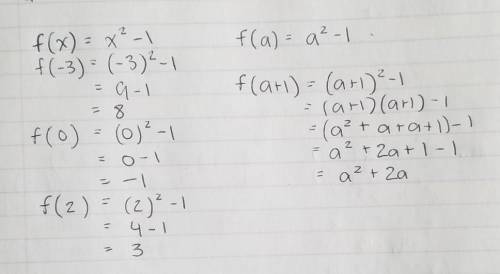 f(x) = x² - 1
f(-3) = (-3)² - 1
= 9 - 1
= 8
f(0) = (0)² - 1
= 0 - 1
= -1
f(2) = (2)² - 1
= 4 - 1
= 3
f(a) = a² - 1
f(a+1) = (a+1)² - 1
= (a+1)(a+1) - 1
= (a² + a + a + 1) - 1
= a² + 2a + 1 - 1
= a² + 2a